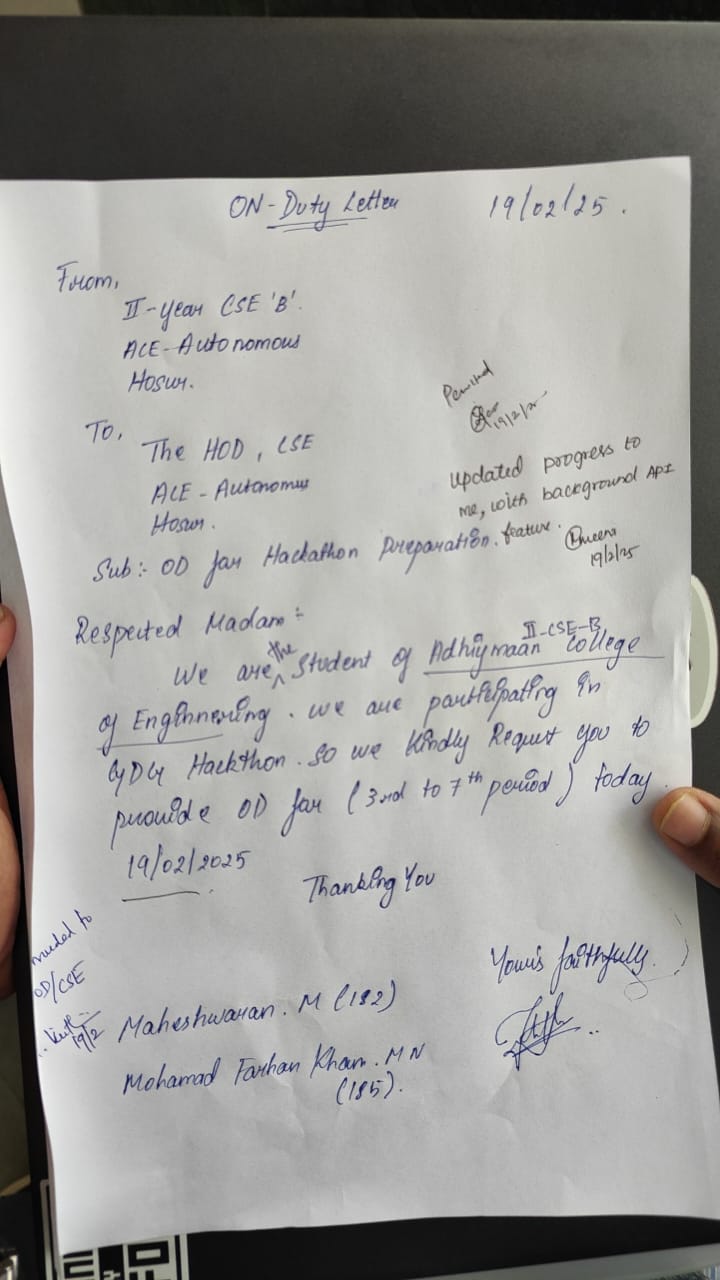 ON-Duty Letter
19/02/25.
From,
II-year CSE 'B'.
ACE-Autonomous
Hosur.
To,
The HOD, CSE
ACE - Autonomus
Hosur.
19/2/25
updated progress to
me, with background API
feature.
19/2/25
Sub:- OD for Hackathon Preparation.
Respected Madam:-
II-CSE-B
We are the Student of Adhiymaan College
of Enginnering. We are participating in
GDG Hackthon. So we kindly Request you to
provide OD for (3rd to 7th period) today
19/02/2025
Thanking You
Yours faithfully.
to
OD/CSE
19/2
Maheshwaran. M (182)
Mohamad Farhan Khan. MN
(185).